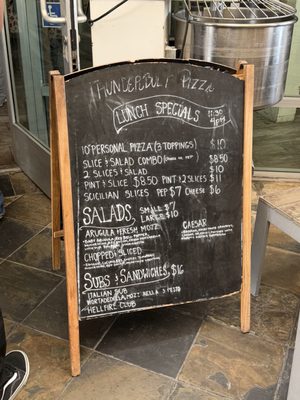 THUNDERBOLT PIZZA
LUNCH SPECIALS 11:30 4PM
10" PERSONAL PIZZA (3 TOPPINGS) $10
SLICE & SALAD COMBO $8.50
2 SLICES & SALAD $10
PINT & SLICE $8.50 PINT & 2 SLICES $11
SICILIAN SLICES PEP $7 CHEESE $6
SALADS, SMALL $7
LARGE $10
ARUGULA FRESH MOZZ
CAESAR
CHOPPED & SLICED
SUBS & SANDWICHES, $16
ITALIAN SUB
MORTADELLA, MOZZARELLA & PESTO
HELLFIRE CLUB